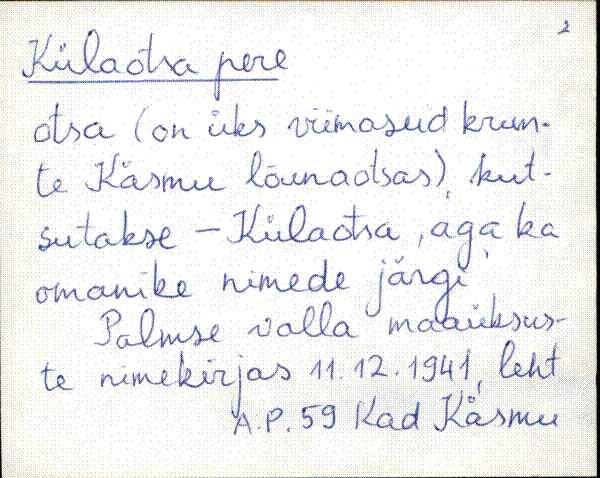 2
Külaotsa pere
otsa (on üks viimaseid krun-
te Käsmu lõunaotsas), kut-
sutakse - Külaotsa, aga ka
omanike nimede järgi
Palmse valla maaüksus-
te nimekirjas 11.12.1941, leht
A.P. 59 Kad Käsmu